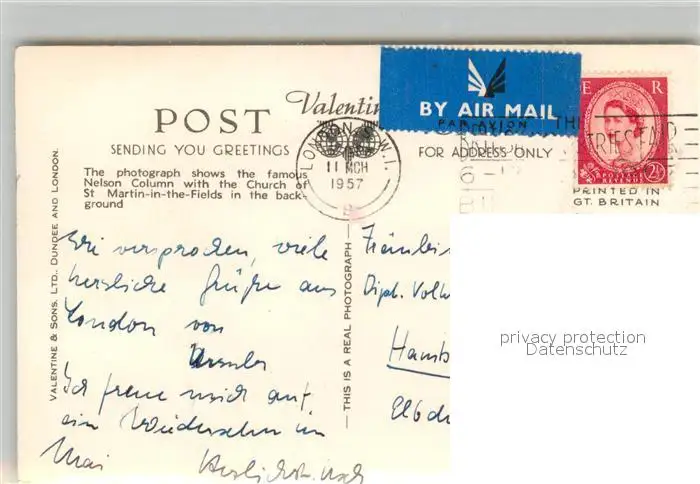 Valentin
BY AIR MAIL
PAR AVION
E R
POST
SENDING YOU GREETINGS
FOR ADDRESS ONLY
LONDON S.W.1.
11 MCH
1957
B
BRITISH
INDUSTRIES FAIR
POSTAGE REVENUE
2½
PRINTED IN
GT. BRITAIN
The photograph shows the famous
Nelson Column with the Church of
St Martin-in-the-Fields in the back-
ground
VALENTINE & SONS. LTD., DUNDEE AND LONDON.
THIS IS A REAL PHOTOGRAPH
Wie versprochen, viele
herzliche Grüße aus
London von
Ursula
Ich freue mich auf
ein Wiedersehn im
Mai
Fräulein
Dipl. Volk
Hamb
Elbch
privacy protection
Datenschutz